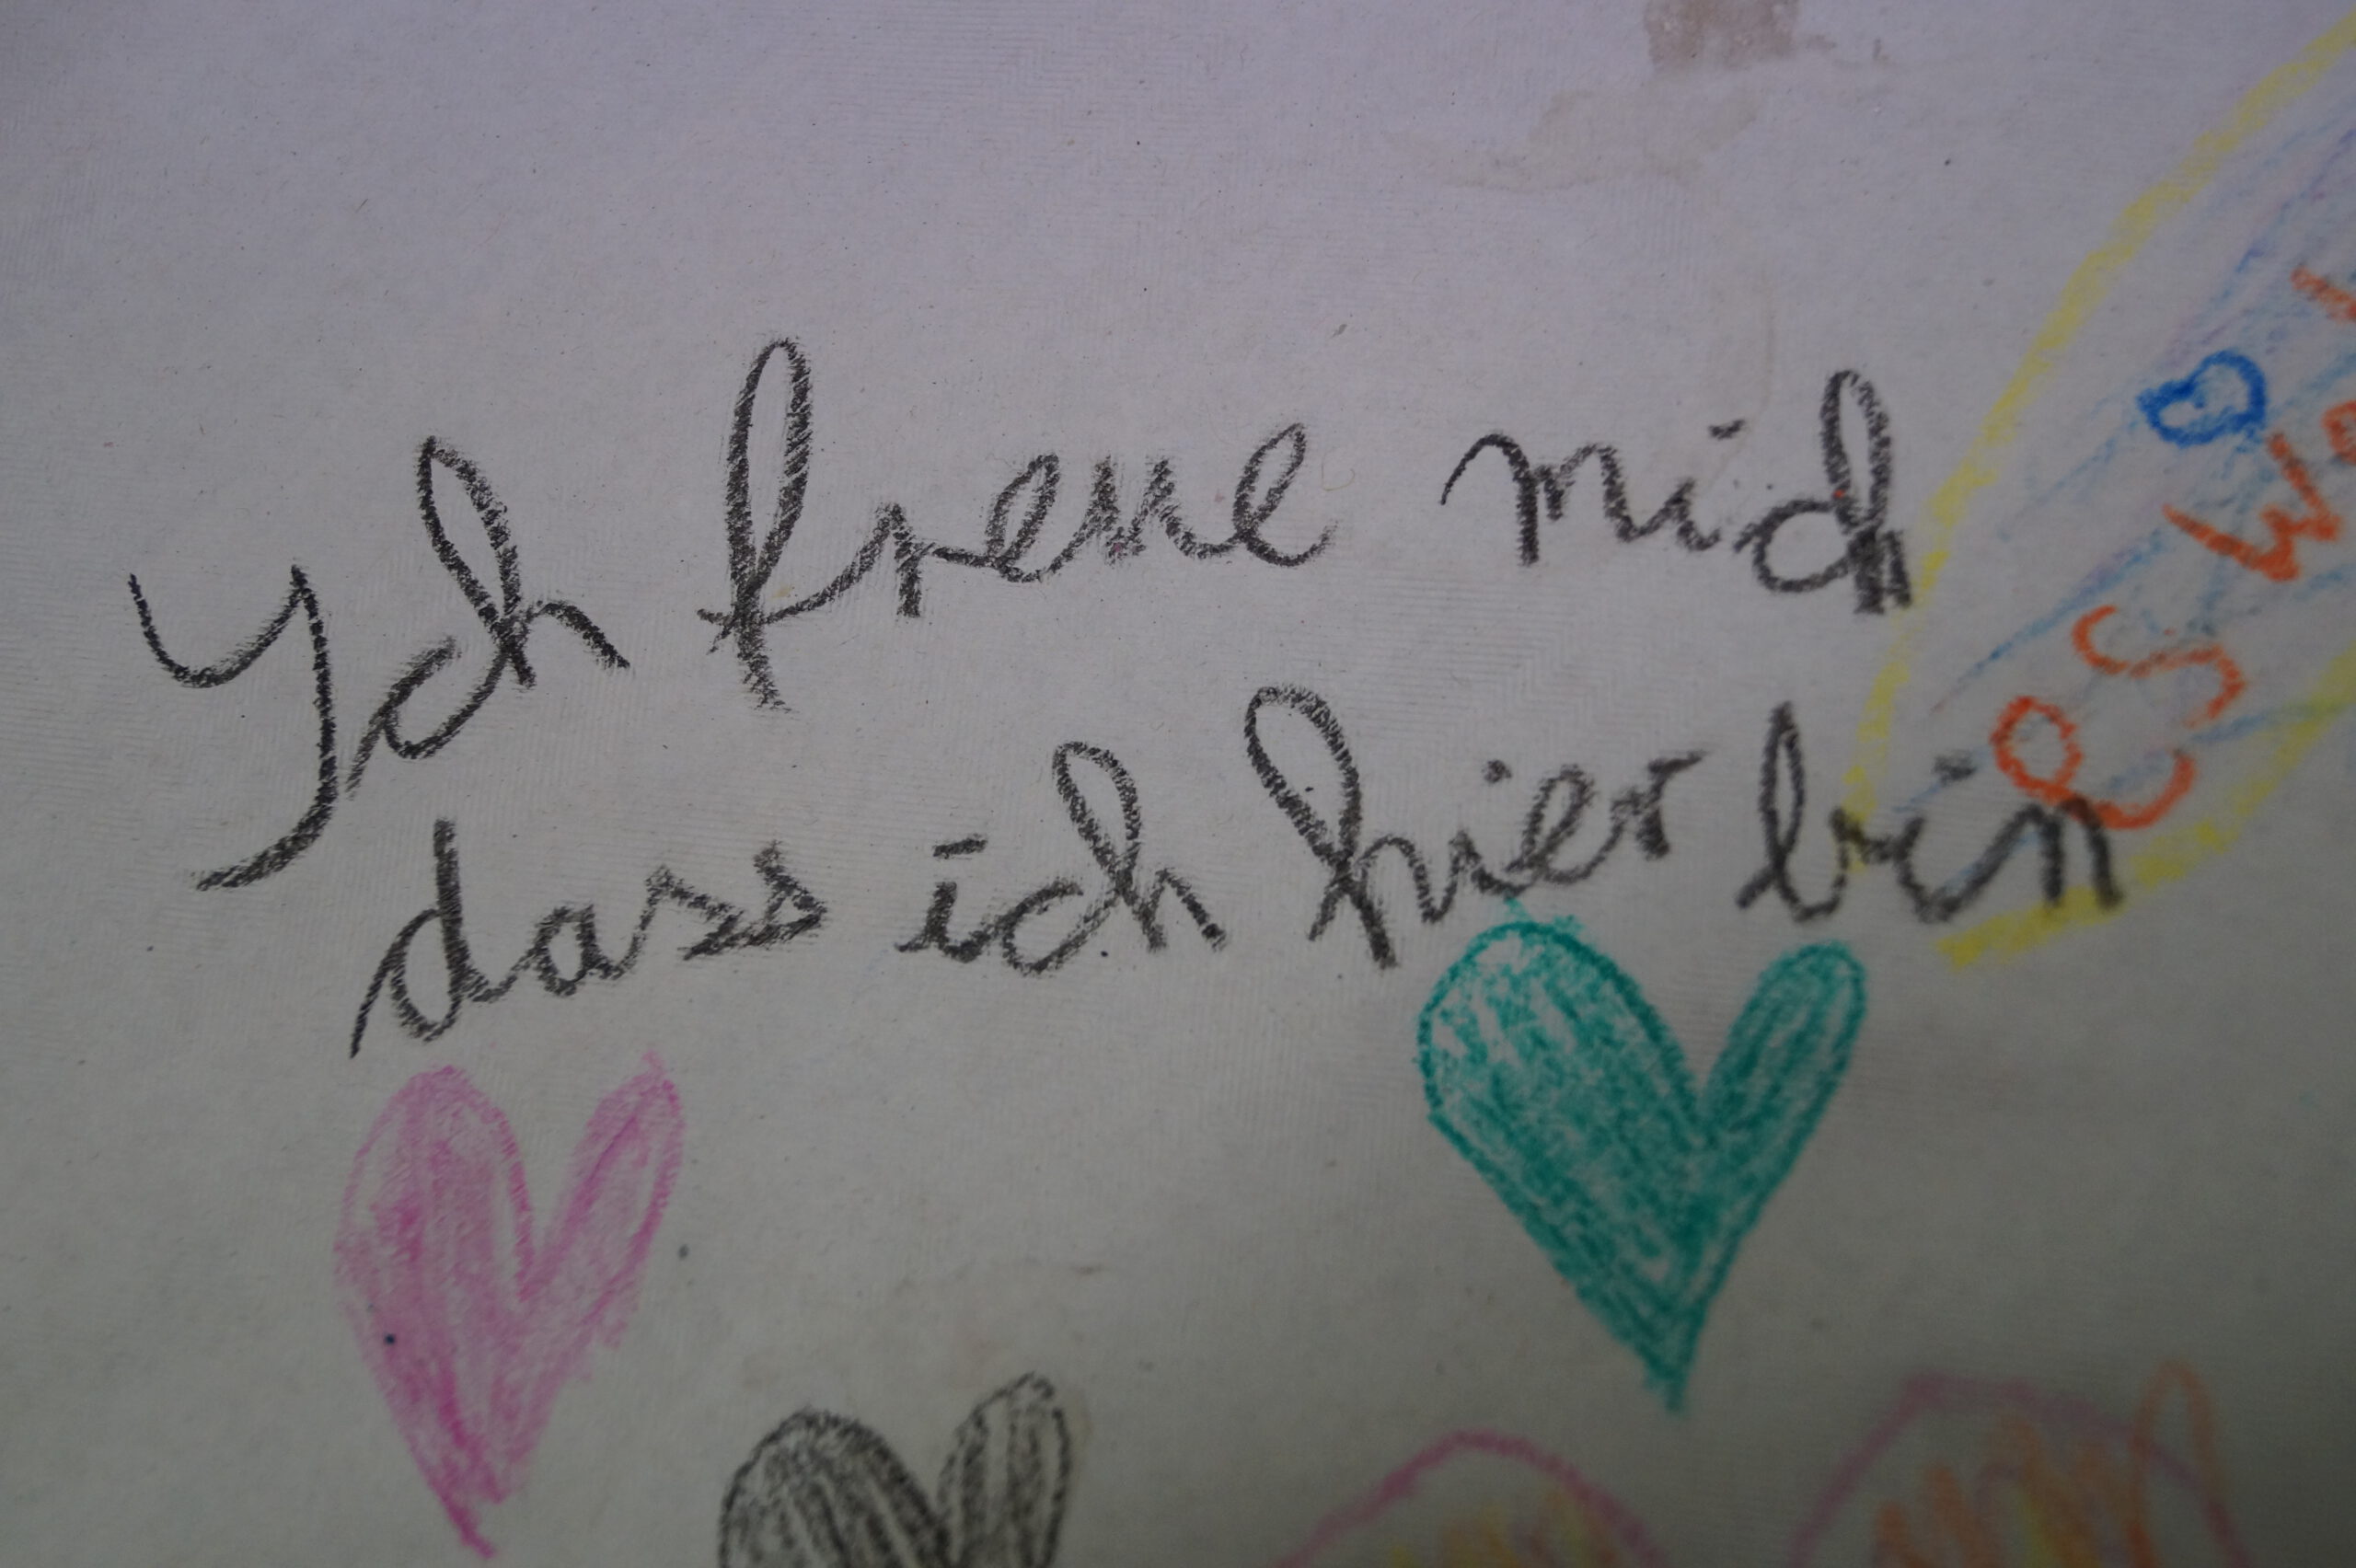 Ich freue mich
dass ich hier bin
es wa